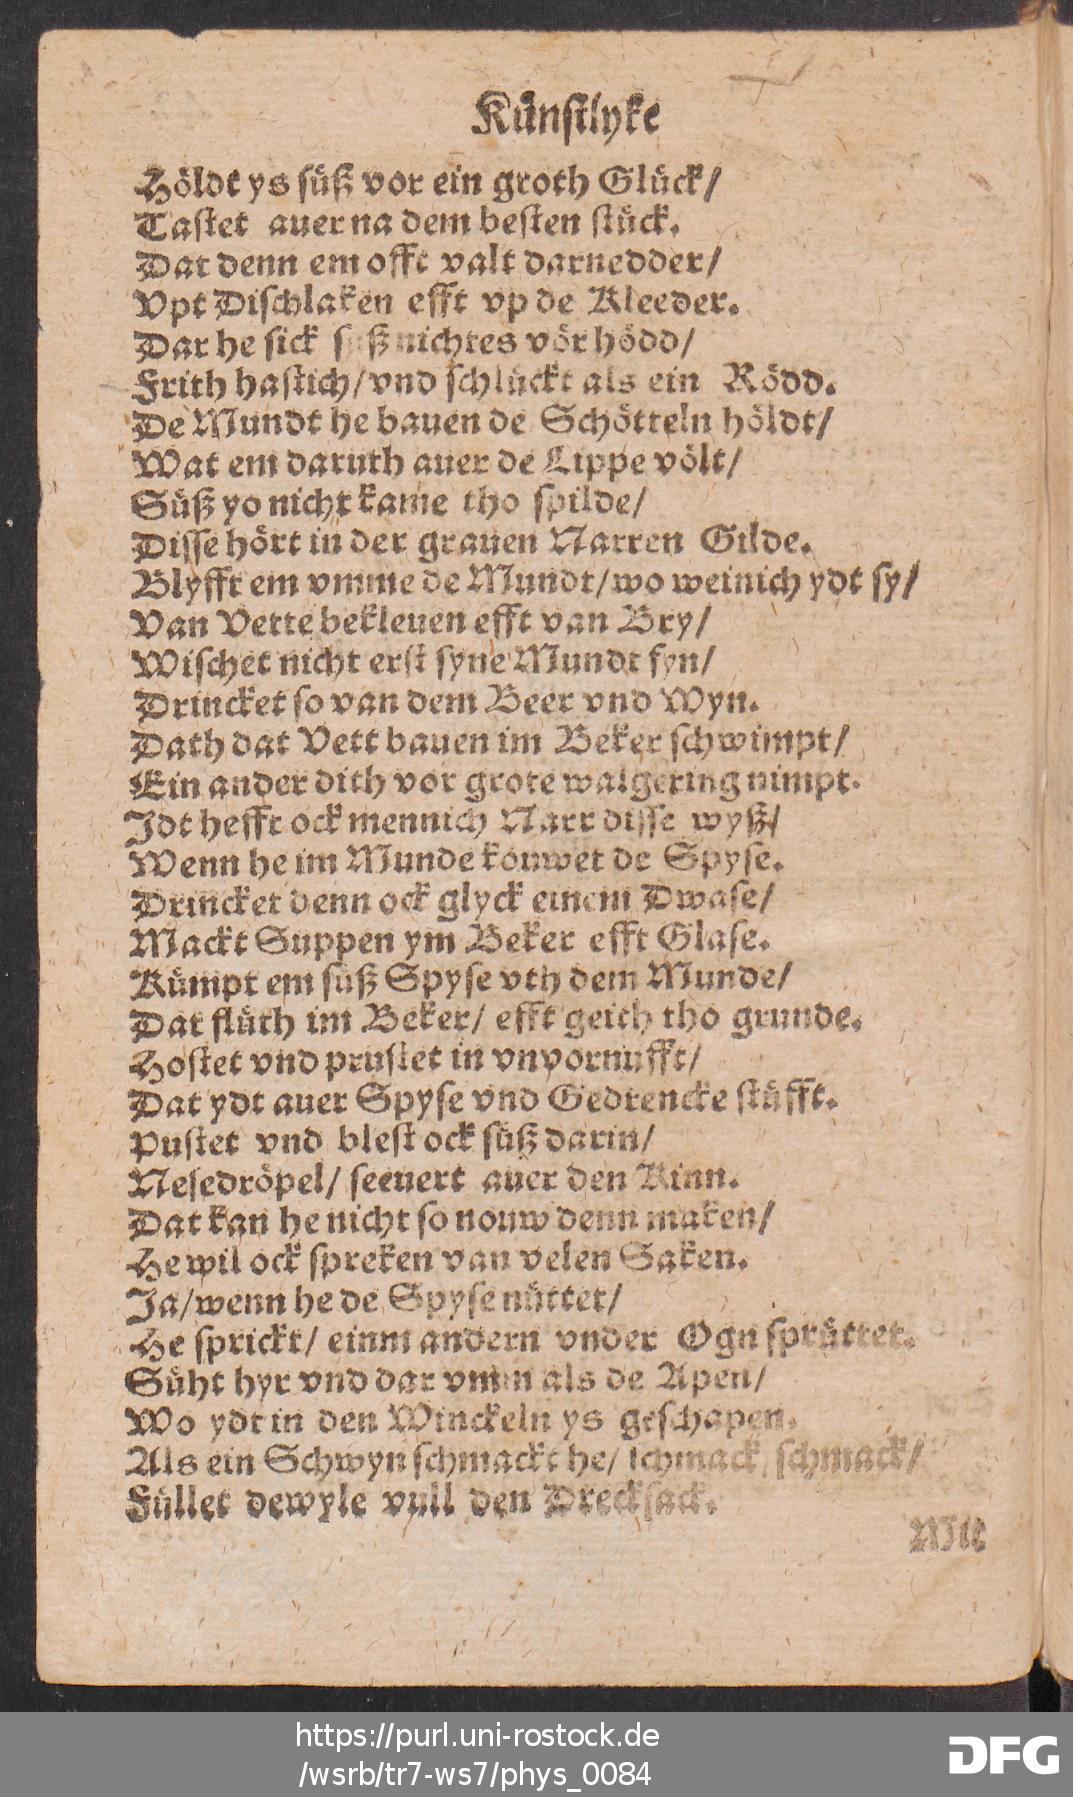 Künstlyke
Höldt ys süß vor ein groth Glück/
Tastet auer na dem besten stück.
Dat denn em offt valt darnedder/
Vpt Dischlaken efft vp de Kleeder.
Dar he sick süß nichtes vör hödd/
Frith hastich/ vnd schluckt als ein Rödd.
De Mundt he bauen de Schötteln höldt/
Wat em daruth auer de Lippe völt/
Süß yo nicht kame tho spilde/
Disse hört in der grauen Narren Gilde.
Blyfft em vmme de Mundt/ wo weinich ydt sy/
Van Vette bekleuen efft van Bry/
Wischet nicht erst syne Mundt fyn/
Drincket so van dem Beer vnd Wyn.
Dath dat Vett bauen im Beker schwimpt/
Ein ander dith vor grote walgering nimpt.
Idt hefft ock mennich Narr disse wyß/
Wenn he im Munde kouwet de Spyse.
Drincket denn ock glyck einem Dwase/
Mackt Suppen ym Beker efft Glase.
Kümpt em süß Spyse vth dem Munde/
Dat flüth im Beker/ efft geith tho grunde.
Hostet vnd prustet in vnvornufft/
Dat ydt auer Spyse vnd Gedrencke stüfft.
Pustet vnd blest ock süß darin/
Nesedröpel/ seeuert auer den Kinn.
Dat kan he nicht so nouw denn maken/
He wil ock spreken van velen Saken.
Ja/ wenn he de Spyse nüttet/
He sprickt/ einm andern vnder Ogn sprüttet.
Süht hyr vnd dar vmm als de Apen/
Wo ydt in den Winckeln ys geschapen.
Als ein Schwyn schmackt he/ schmack schmack/
Füllet dewyle vull den Drecksack.
Mit
https://purl.uni-rostock.de
/wsrb/tr7-ws7/phys_0084
DFG